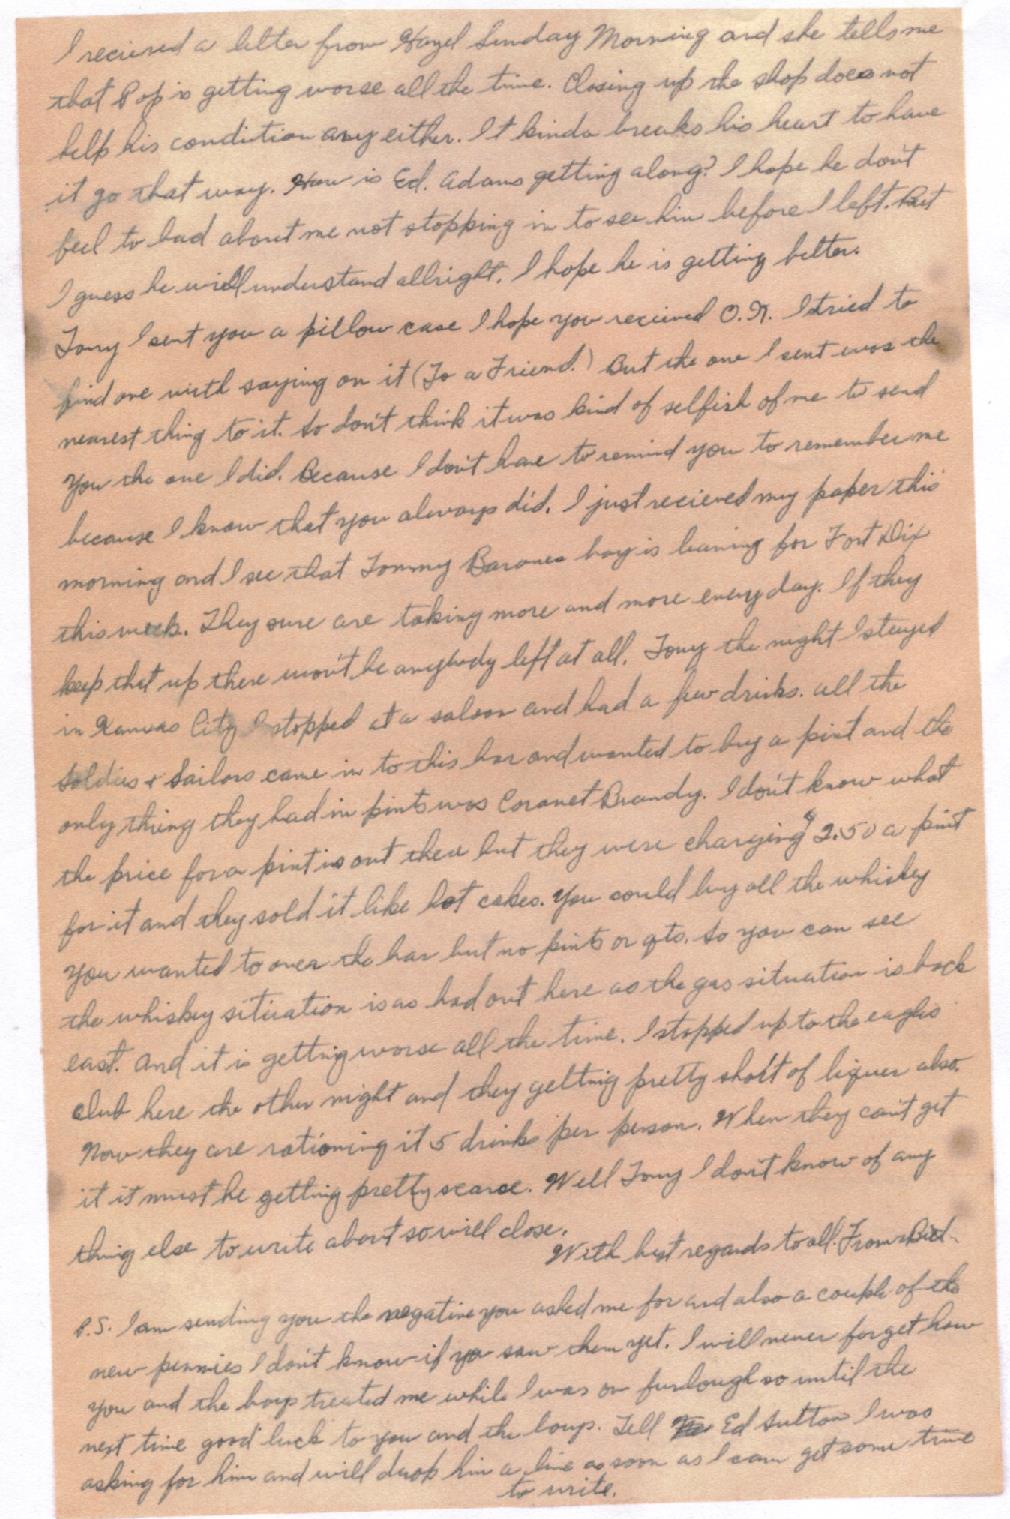 I recieved a letter from Hazel Sunday Morning and she tells me
that Pop is getting worse all the time. Closing up the shop does not
help his condiction any either. It kinda breaks his heart to have
it go that way. How is Ed. Adams getting along? I hope he don't
feel to bad about me not stopping in to see him before I left. But
I guess he will understand allright. I hope he is getting better.
Tony I sent you a pillow case I hope you received O.K. I tried to
find one with saying on it (To a Friend.) But the one I sent was the
nearest thing to it. So don't think it was kind of selfish of me to send
you the one I did. Because I don't have to remind you to remember me
because I know that you always did. I just recieved my paper this
morning and I see that Tommy Barones boy is leaving for Fort Dix
this week. They sure are taking more and more every day. If they
keep that up there won't be anybody left at all. Tony the night I stayed
in Kansas City I stopped at a saloon and had a few drinks. all the
Soldies & Sailors came in to this bar and wanted to buy a pint and the
only thing they had in pints was Coronet Brandy. I don't know what
the price for a pint is out there but they were charging $2.50 a pint
for it and they sold it like hot cakes. You could buy all the whiskey
you wanted to over the bar but no pints or qts. So you can see
the whiskey situation is as bad out here as the gas situation is back
east. And it is getting worse all the time. I stopped up to the eagles
club here the other night and they getting pretty short of liquer also.
Now they are rationing it 5 drinks per person. When they can't get
it it must be getting pretty scarce. Well Tony I don't know of any
thing else to write about so will close.
With best regards to all. From
P.S. I am sending you the negative you asked me for and also a couple of the
new pennies I don't know if you saw them yet. I will never forget how
you and the boys treated me while I was on furlough so until the
next time good luck to you and the boys. Tell Ed Sutton I was
asking for him and will drop him a line as soon as I can get some time
to write.